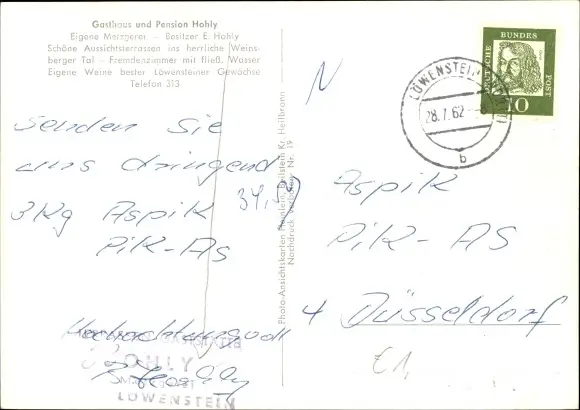 Gasthaus und Pension Hohly
Eigene Metzgerei – Besitzer E. Hohly
Schöne Aussichtsterrassen ins herrliche Weins-
berger Tal – Fremdenzimmer mit fließ. Wasser
Eigene Weine bester Löwensteiner Gewächse
Telefon 313
Senden Sie
uns dringend
3 Kg Aspik
Pik-As
34,50
Hochachtungsvoll
OHLY
LÖWENSTEIN
Photo-Ansichtskarten Hennlein, Beilstein Kr. Heilbronn
Nachdruck verboten Nr. 19
N
DEUTSCHE BUNDESPOST
10
LÖWENSTEIN
28.7.62-8
b
Aspik
Pik-AS
4 Düsseldorf
£1,